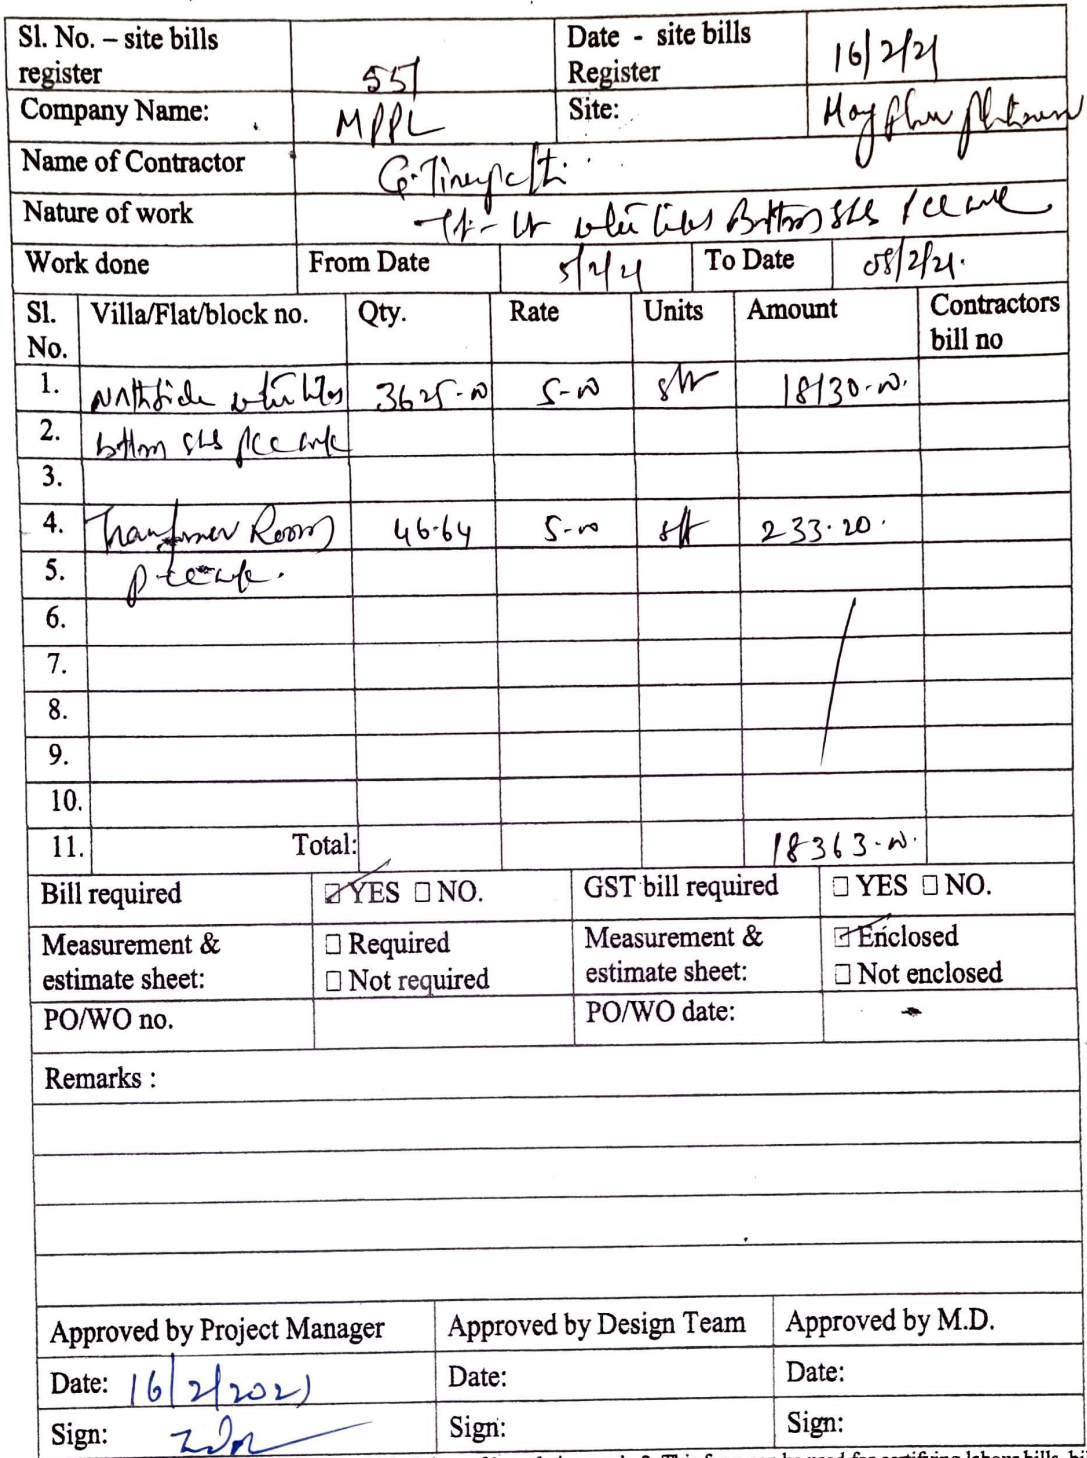 Sl. No. – site bills register 551 Date - site bills Register 16/2/21
Company Name: MPPL Site: May Platinum
Name of Contractor G. Tirupathi
Nature of work Bottom slab PCC work
Work done From Date 5/2/21 To Date 08/2/21.
Sl. No. Villa/Flat/block no. Qty. Rate Units Amount Contractors bill no
1. Northside 3625-00 5-00 sft 18130-00.
2. bottom slab PCC work
3.
4. Transformer Room 46.64 5-00 sft 233.20.
5. P.cc work.
6.
7.
8.
9.
10.
11. Total: 18363-00.
Bill required ☑ YES ☐ NO. GST bill required ☐ YES ☐ NO.
Measurement & estimate sheet: ☐ Required ☐ Not required Measurement & estimate sheet: ☑ Enclosed ☐ Not enclosed
PO/WO no. PO/WO date:
Remarks :
Approved by Project Manager Approved by Design Team Approved by M.D.
Date: 16/2/2021 Date: Date:
Sign: Sign: Sign: